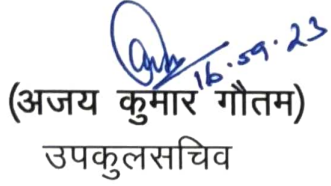 16.59.23
(अजय कुमार गौतम)
उपकुलसचिव